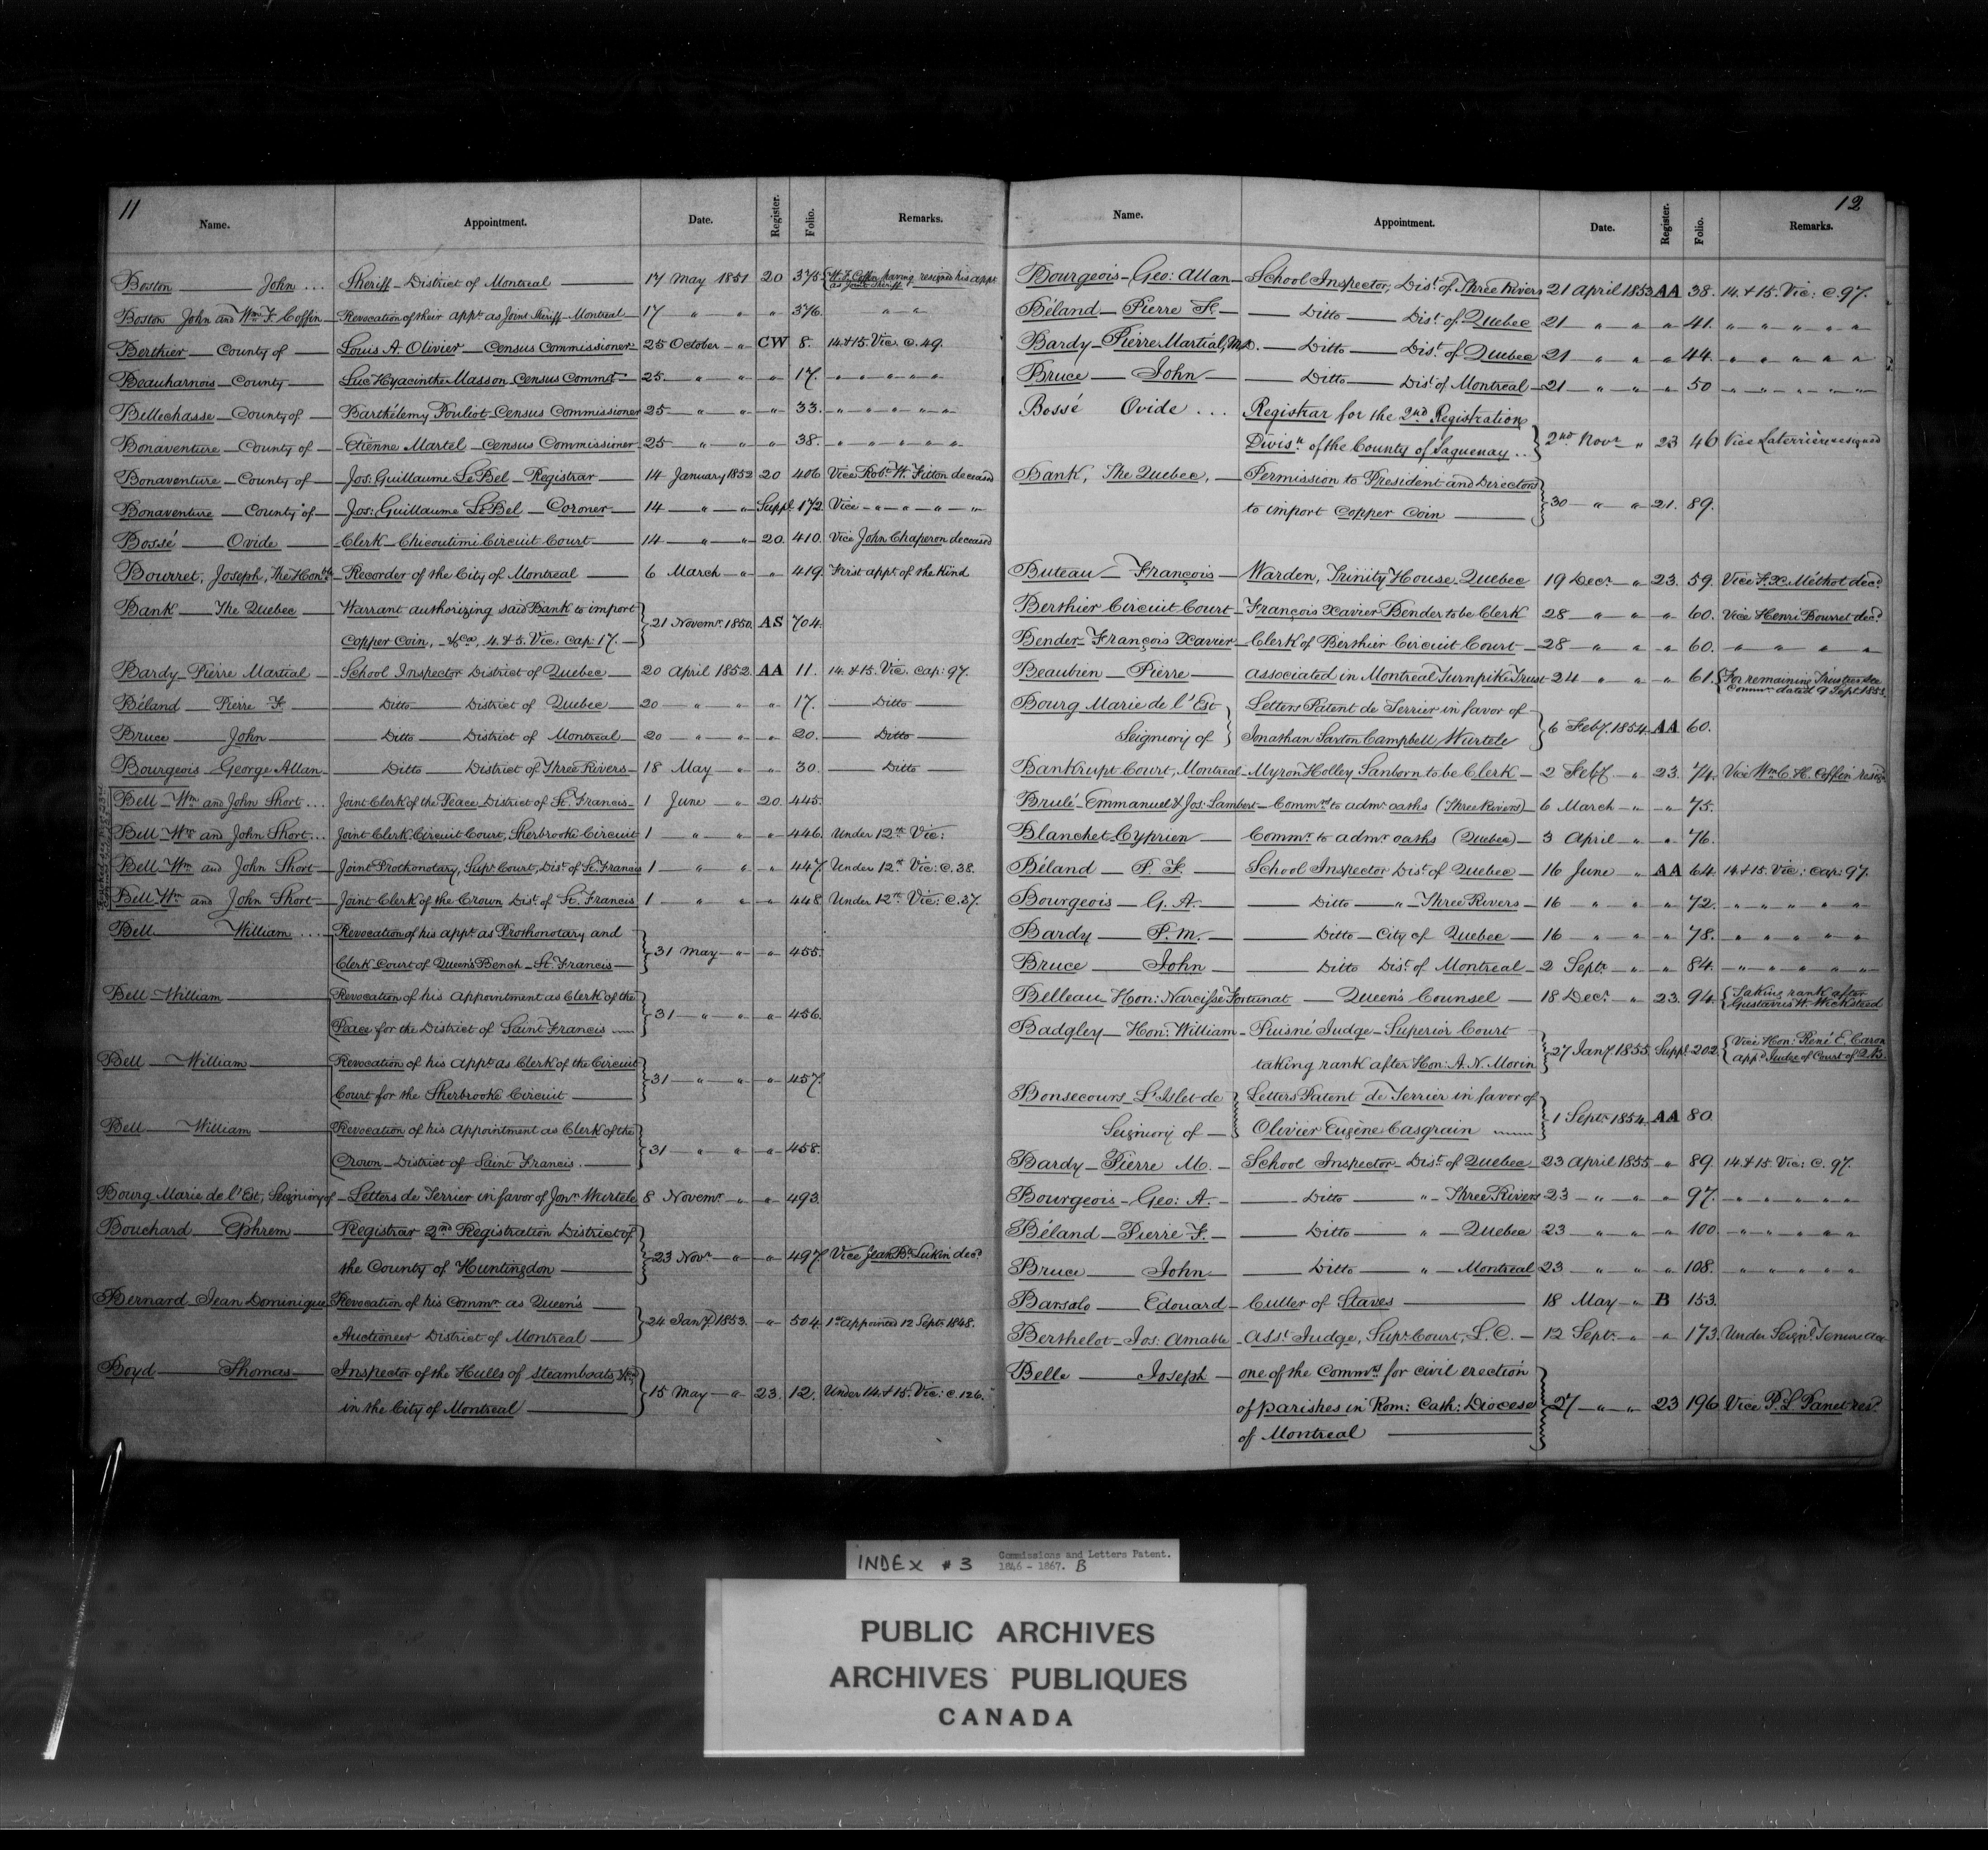 11
Name. Appointment. Date. Register. Folio. Remarks.
Boston John ... Sheriff District of Montreal 17 May 1851 20 375 W. F. Coffin having resigned his appt as Joint Sheriff
Boston John and Wm. F. Coffin Revocation of their appt. as Joint Sheriff Montreal 17 " " " 376. " "
Berthier County of Louis A. Olivier Census Commissioner 25 October " CW 8. 14 & 15 Vic. C. 49.
Beauharnois County Luc Hyacinthe Masson Census Commr. 25 " " " 17. " " " " "
Bellechasse County of Barthélemy Pouliot Census Commissioner 25 " " " 33. " " " " "
Bonaventure County of Etienne Martel Census Commissioner 25 " " " 38. " " " " "
Bonaventure County of Jos. Guillaume LeBel Registrar 14 January 1852 20 406 Vice Robt. W. Fitton deceased
Bonaventure County of Jos: Guillaume LeBel Coroner 14 " " Suppl. 172 Vice " " " "
Bossé Ovide Clerk Chicoutimi Circuit Court 14 " " 20. 410. Vice John Chaperon deceased
Bourret, Joseph, The Honble. Recorder of the City of Montreal 6 March " " 419 First appt. of the Kind
Bank The Quebec Warrant authorizing said Bank to import
Copper Coin, &ca, 4. & 5. Vic. Cap: 17. 21 Novemr. 1850. AS 704.
Bardy Pierre Martial School Inspector District of Quebec 20 April 1852. AA 11. 14. & 15. Vic. Cap: 97.
Béland Pierre F. Ditto District of Quebec 20 " " " 17. Ditto
Bruce John Ditto District of Montreal 20 " " " 20. Ditto
Bourgeois George Allan Ditto District of Three Rivers 18 May " " 30. Ditto
Bell Wm. and John Short ... Joint Clerk of the Peace District of St. Francis 1 June " 20. 445.
Bell Wm. and John Short ... Joint Clerk Circuit Court, Sherbrooke Circuit 1 " " " 446. Under 12th. Vic:
Bell Wm. and John Short Joint Prothonotary, Supr. Court, Dist. of St. Francis 1 " " " 447. Under 12th. Vic: C. 38.
Bell Wm. and John Short Joint Clerk of the Crown Dist. of St. Francis 1 " " " 448 Under 12th. Vic: C. 37.
Bell William ... Revocation of his appt. as Prothonotary and
Clerk Court of Queen's Bench St. Francis 31 May " " 455.
Bell William Revocation of his appointment as Clerk of the
Peace for the District of Saint Francis 31 " " " 456.
Bell William Revocation of his appt. as Clerk of the Circuit
Court for the Sherbrooke Circuit 31 " " " 457.
Bell William Revocation of his appointment as Clerk of the
Crown District of Saint Francis. 31 " " " 458.
Bourg Marie de l'Est, Seigniory of Letters de Terrier in favor of Jonn. Wurtele 8 Novemr. " " 493.
Bouchard Ephrem Registrar 2nd Registration District of
the County of Huntingdon 23 Novr. " " 497. Vice Jean Bte. Lukin decd.
Bernard Jean Dominique Revocation of his Commr. as Queen's
Auctioneer District of Montreal 24 Jany. 1853. " 504. 1st Appointed 12 Septr. 1848.
Boyd Thomas Inspector of the Hulls of Steamboats, &ca
in the City of Montreal 15 May " 23. 12. Under 14. & 15. Vic: C. 126.
12
Name. Appointment. Date. Register. Folio. Remarks.
Bourgeois Geo: Allan School Inspector, Dist. of Three Rivers 21 April 1853 AA 38. 14. & 15. Vic: C. 97.
Béland Pierre F. Ditto Dist. of Quebec 21 " " " 41. " " " " "
Bardy Pierre Martial, M.D. Ditto Dist. of Quebec 21 " " " 44. " " " " "
Bruce John Ditto Dist. of Montreal 21 " " " 50 " " " " "
Bossé Ovide ... Registrar for the 2nd Registration
Divisn. of the County of Saguenay .. 2nd Novr. " 23 46 Vice Laterrière resigned
Bank, The Quebec, Permission to President and Directors
to import Copper Coin 30 " " 21. 89.
Buteau François Warden, Trinity House Quebec 19 Decr. " 23. 59. Vice F. X. Méthot decd.
Berthier Circuit Court François Xavier Bender to be Clerk 28 " " " 60. Vice Henri Bourret decd.
Bender François Xavier Clerk of Berthier Circuit Court 28 " " " 60. " " " "
Beaubien Pierre Associated in Montreal Turnpike Trust 24 " " " 61. For remaining Trustees see Commn. dated 9 Sept 1853.
Bourg Marie de l'Est Letters Patent de Terrier in favor of
Seigniory of Jonathan Saxton Campbell Wurtele 6 Feby. 1854. AA 60.
Bankrupt Court, Montreal Myron Holley Sanborn to be Clerk 2 Feby. " 23. 74. Vice Wm. C. H. Coffin resigd.
Brulé Emmanuel & Jos: Lambert Commrs. to admr. oaths (Three Rivers) 6 March " " 75.
Blanchet Cyprien Commr. to admr. oaths (Quebec) 3 April " " 76.
Béland P. F. School Inspector Dist. of Quebec 16 June " AA 64. 14. & 15. Vic: Cap: 97.
Bourgeois G. A. Ditto " Three Rivers 16 " " " 72. " " " " "
Bardy P. M. Ditto City of Quebec 16 " " " 78. " " " " "
Bruce John Ditto Dist. of Montreal 2 Septr. " " 84. " " " " "
Belleau Hon: Narcisse Fortunat Queen's Counsel 18 Decr. " 23. 94. Taking rank after Gustavus W. Wicksteed
Badgley Hon: William Puisné Judge Superior Court
taking rank after Hon: A. N. Morin 27 Jany. 1855. Suppl. 202. Vice Hon: René E. Caron appd. Judge of Court of Q.B.
Bonsecours L'Islet de Letters Patent de Terrier in favor of
Seigniory of Olivier Eugène Casgrain 1 Septr. 1854. AA 80.
Bardy Pierre M. School Inspector Dist. of Quebec 23 April 1855 " 89. 14. & 15. Vic: C. 97.
Bourgeois Geo: A. Ditto " Three Rivers 23 " " " 97. " " " " "
Béland Pierre F. Ditto " Quebec 23 " " " 100. " " " " "
Bruce John Ditto " Montreal 23 " " " 108. " " " " "
Barsalo Edouard Culler of Staves 18 May " B 153.
Berthelot Jos: Amable Asst. Judge, Supr. Court, L. C. 12 Septr. " " 173. Under Seignl. Tenure Act
Belle Joseph one of the Commrs. for civil erection
of parishes in Rom: Cath: Diocese 27 " " 23 196 Vice P. L. Panet resd.
of Montreal
INDEX # 3 Commissions and Letters Patent.
1846 - 1867. B
PUBLIC ARCHIVES
ARCHIVES PUBLIQUES
CANADA